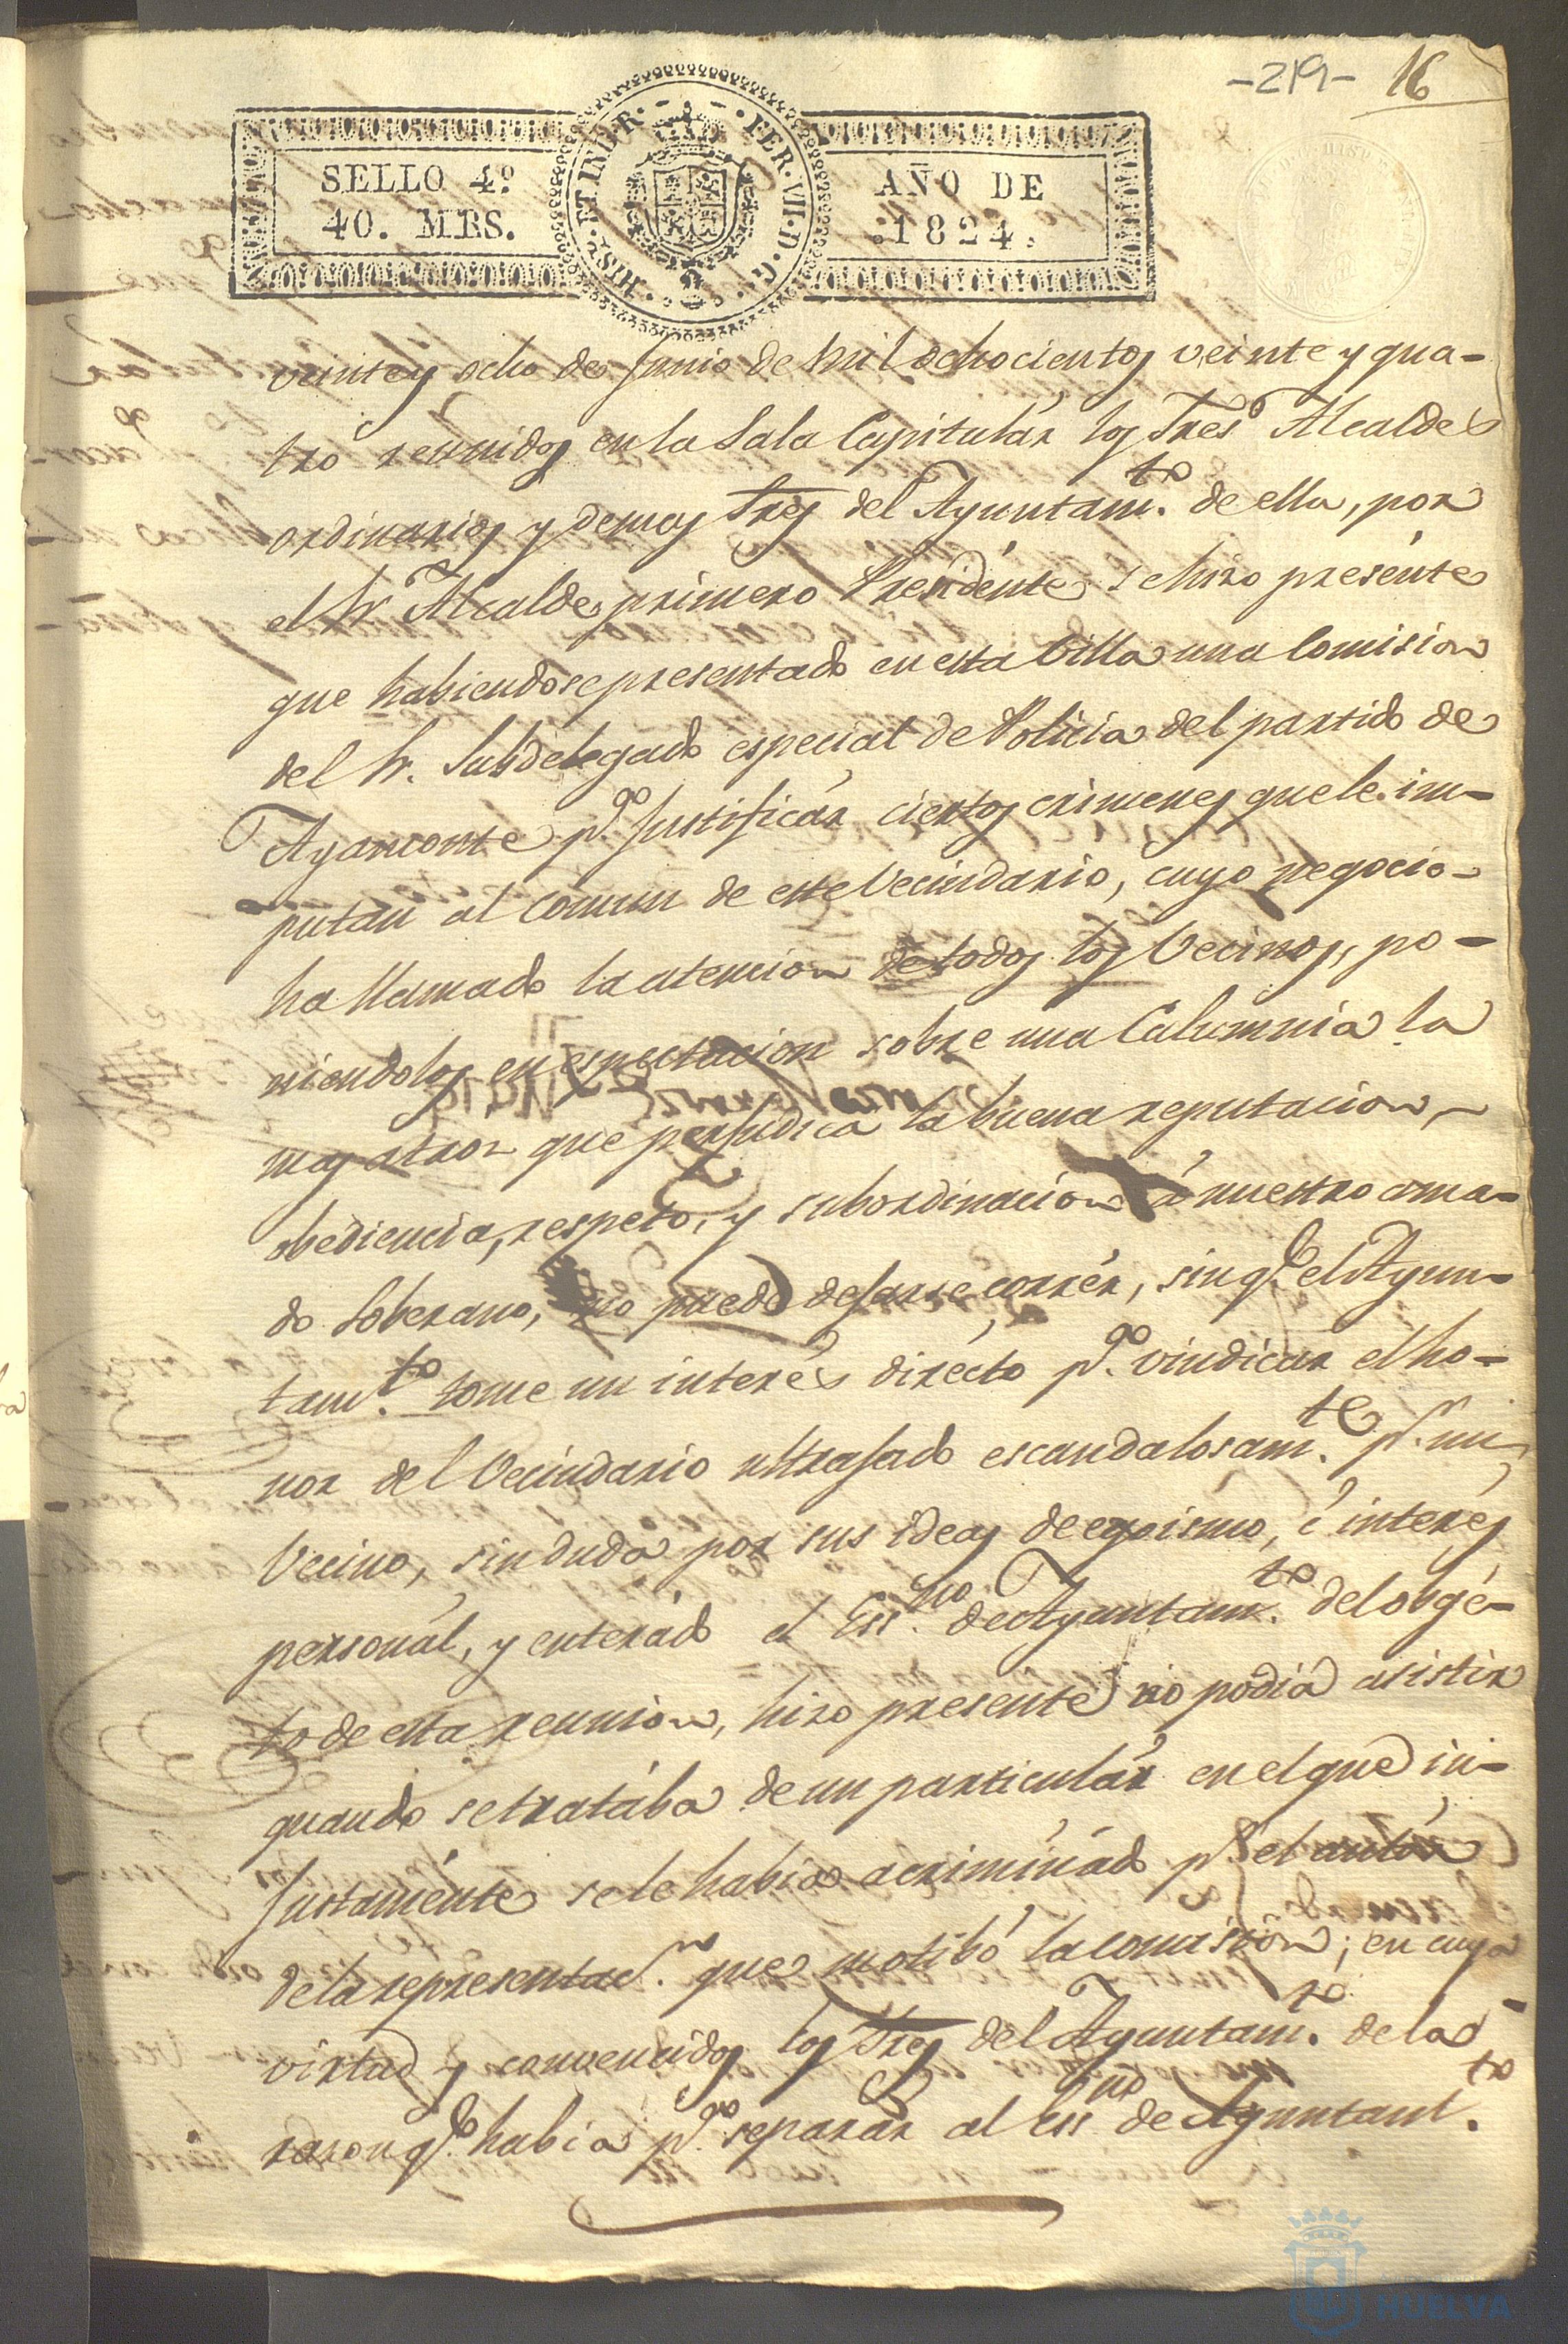 -219- 16
SELLO 4º
40. MRS.
HISP. ET IND. R. FER. VII. D. G.
AÑO DE
.1824.
veinte y ocho de Junio de mil ochocientos veinte y qua-
tro reunidos en la Sala Capitulár los Sres Alcaldes
ordinarios y demas Sres del Ayuntamto. de ella, por
el Sr Alcalde primero Presidente se hizo presénte
que habiendose presentado en esta Villa una Comision
del Sr. Subdelegado especial de Policia del partido de
Ayamonte pa. justificár ciertos crimenes que le im-
putan al comun de este Vecindario, cuyo negocio
ha llamado la atencion de todos los Vecinos, po-
niendolos en espectacion sobre una Calumnia la
mas atroz que perjudica la buena reputacion,
obediencia, respeto, y subordinacion á nuestro ama-
do Soberano, no puede dejarse corrér, sin qe. el Ayun-
tamto. tome un interés dirécto pa. vindicár el ho-
nor del Vecindario ultrajado escandalosamte. pr. un
Vecino, sin duda por sus ideas de egoismo, é interés
personál, y enterádo el Essno. de Ayuntamto. del obgé-
to de esta reunion, hizo presente no podia asistir
quando se tratába de un particulár en el que in-
justaménte se le habia acriminádo pr. el autór
de la representacn. que motibó la comision; en cuya
virtud y convencidos los Sres del Ayuntamto. de la
razon qe. habia pa. separár al Essno de Ayuntamto.
HUELVA